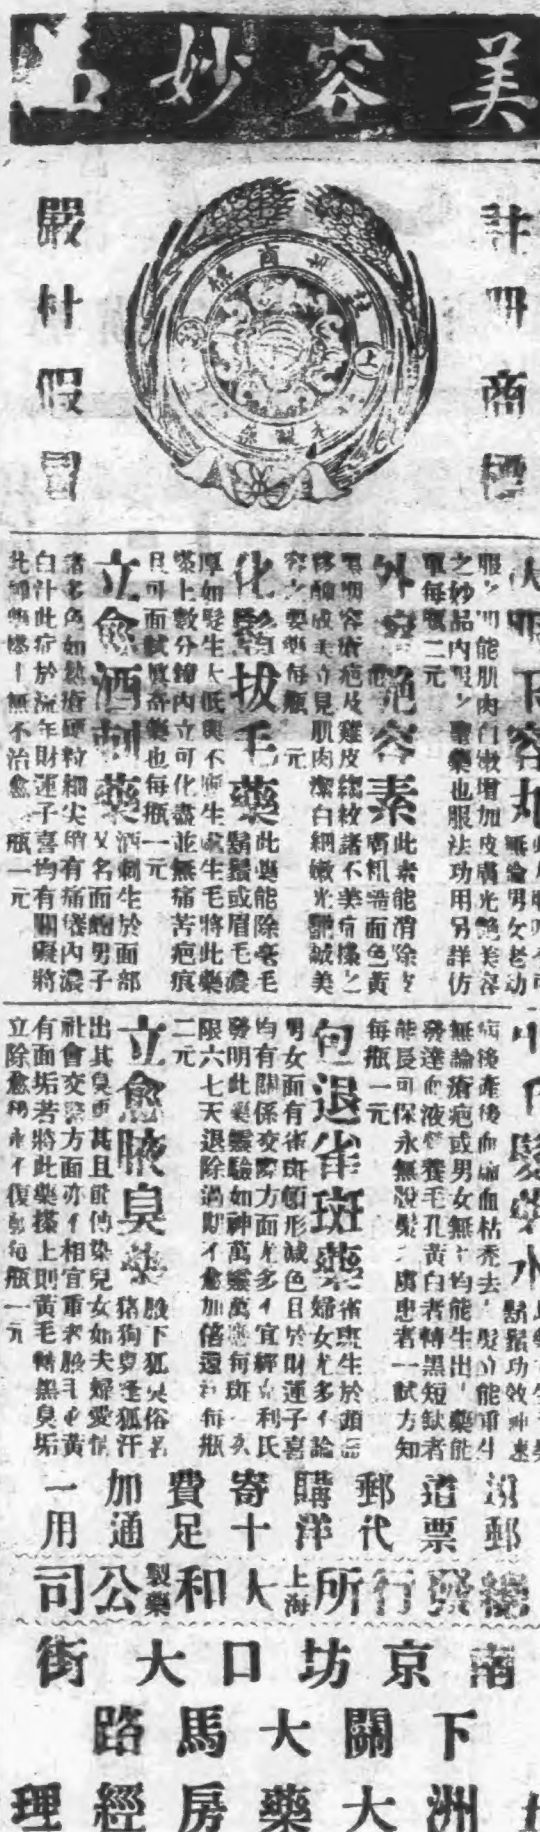 美容妙品
註冊商標
嚴杜假冒
容丸
無論男女老幼
服之可能肌肉白嫩增加皮膚光艷美容
之妙品內服之聖藥也服法功用另詳仿
單每瓶二元
容素
此素能消除皮
膚粗澀面色黃
黑頸容瘡疤及雞皮縐紋諸不美
成美立見肌肉潔白細嫩光艷誠美
容之要藥每瓶 元
化鬍拔毛藥
此藥能除毫毛
鬍鬚或眉毛濃
厚如髮生太低與不應生處生毛將此藥
搽上數分鐘內立可化盡並無痛苦疤痕
且可面試眞奇藥也每瓶一元
立愈酒刺藥
酒刺生於面部
又名面皰男子
諸多色如熱瘡硬粒細尖有痛癢內濃
白汁此症於流年財運子喜均有關礙將
此藥搽上無不治愈 瓶一元
鬍鬚功效神速
病後產後血虧血枯禿去 髮立能重生
無論瘡疤或男女無 均能生出 藥能
發達血液營養毛孔黃白者轉黑短缺者
能長可保永無脫髮之虞患者一試方知
每瓶一元
包退雀斑藥
雀斑生於頭面
婦女尤多不論
男女面有雀斑頓形減色且於財運子喜
均有關係交際方面尤多不宜經 利氏
發明此藥靈驗如神萬靈萬應何斑
限六七天退除過期不愈加倍還 每瓶
二元
立愈腋臭藥
腋下狐臭俗名
豬狗臭 狐汗
出其臭更甚且能傳染兒女如夫婦愛情
社會交際方面亦不相宜重者腋毛 黃
有面垢若將此藥搽上則黃毛轉黑臭垢
立除愈 永不復 每瓶一元
郵購寄費加一
郵票代洋十足通用
總發行所上海大和製藥公司
南京坊口大街
下關大馬路
洲大藥房經理